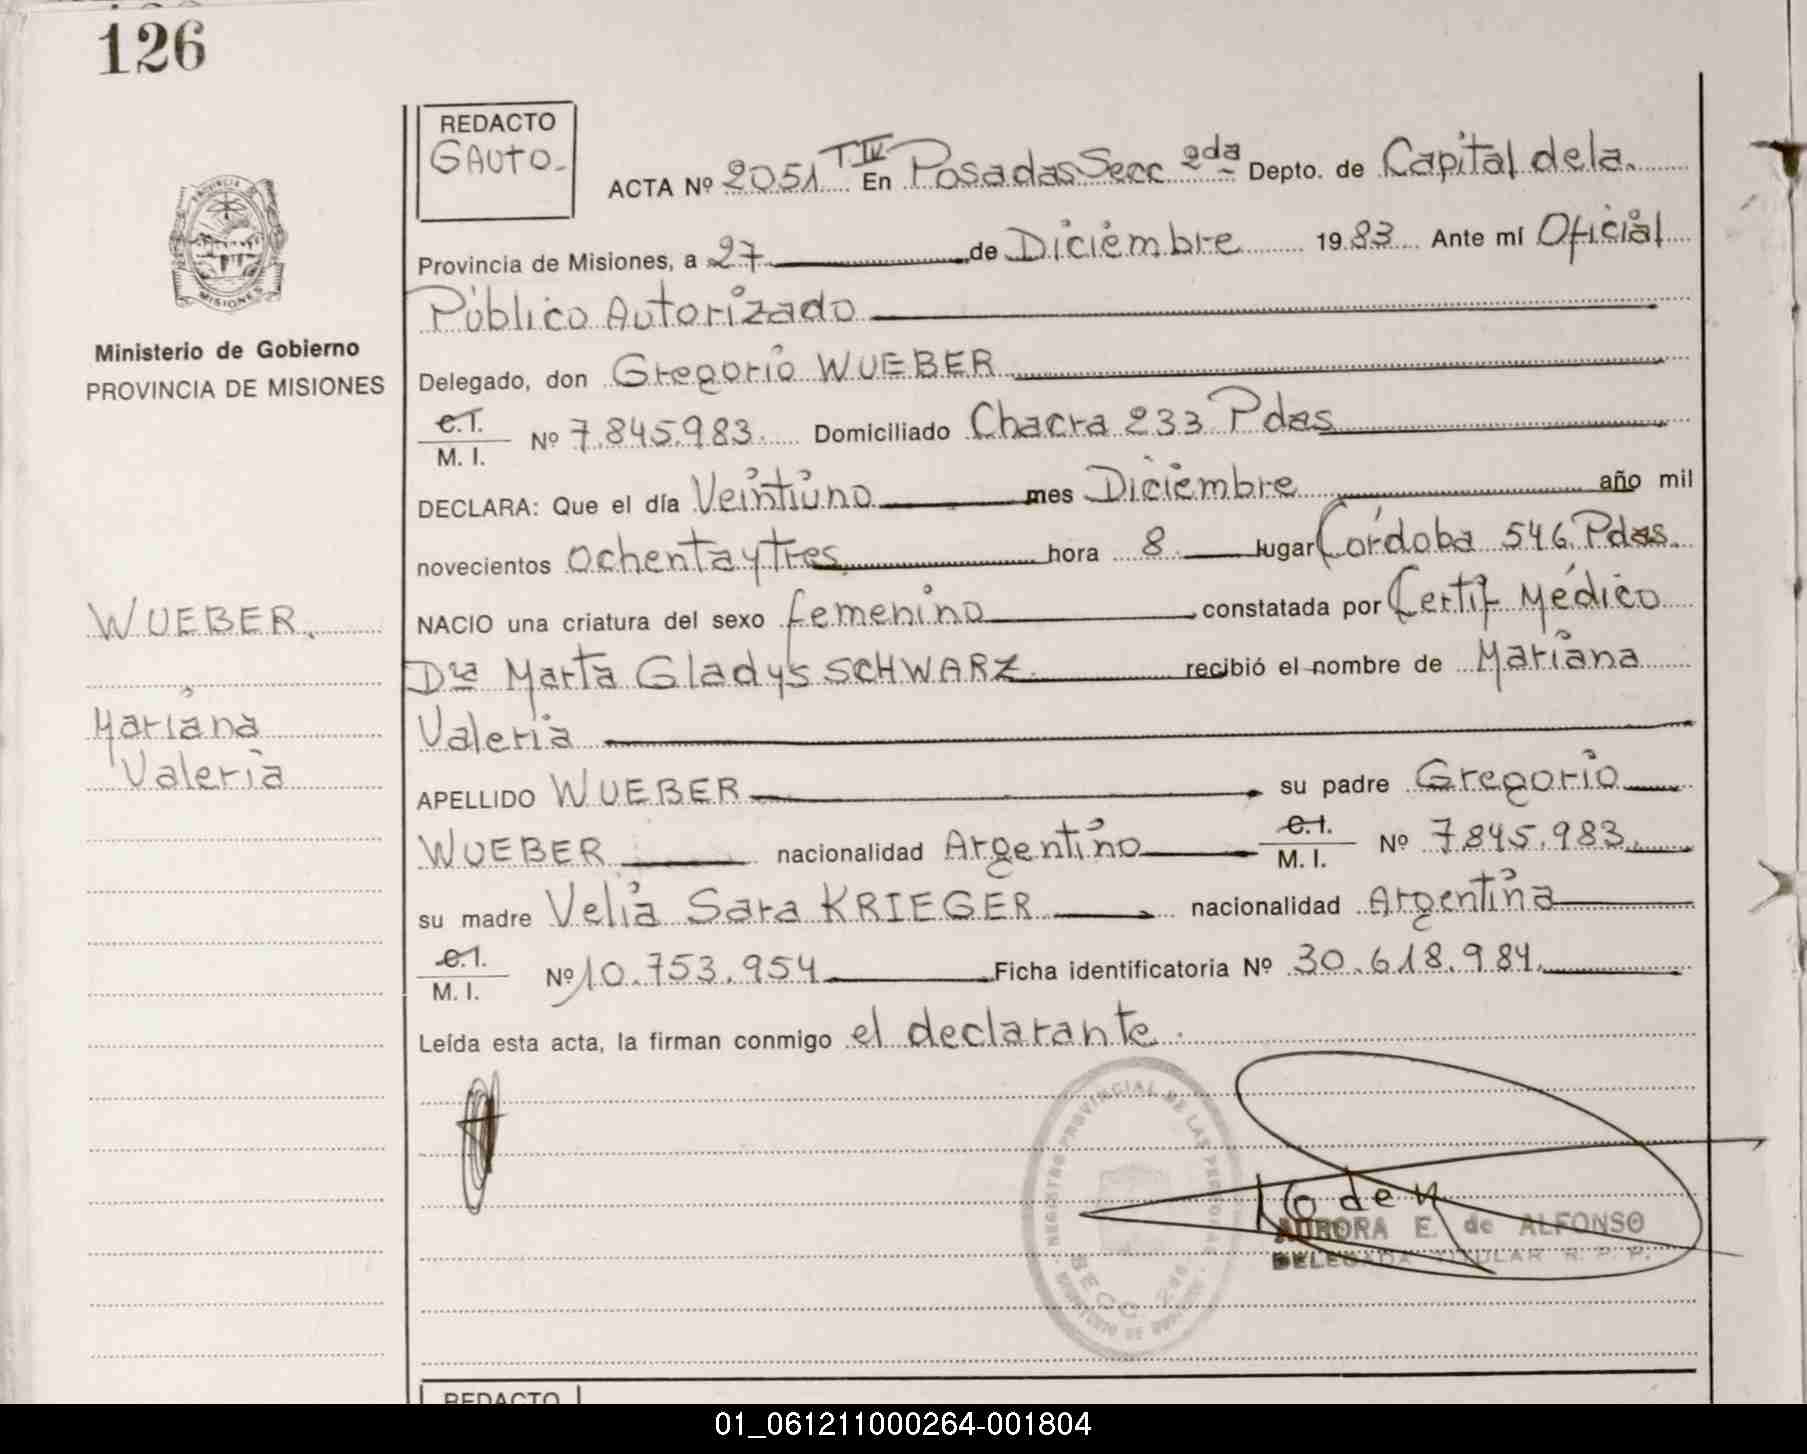 126
REDACTO
GAUTO-
ACTA Nº 2051 T IV En Posadas Secc 2da Depto. de Capital de la
Provincia de Misiones, a 27 de Diciembre 1983 Ante mí Oficial
Público Autorizado
PROVINCIA DE
MISIONES
Ministerio de Gobierno
PROVINCIA DE MISIONES
Delegado, don Gregorio WUEBER
C.I.
M. I. Nº 7.845.983. Domiciliado Chacra 233 Pdas
DECLARA: Que el día Veintiuno mes Diciembre año mil
novecientos Ochenta y tres hora 8 lugar Córdoba 546 Pdas.
WUEBER.
NACIO una criatura del sexo femenino constatada por Certif Médico
Dra Marta Gladys SCHWARZ recibió el nombre de Mariana
Mariana
Valeria
Valeria
APELLIDO WUEBER su padre Gregorio
WUEBER nacionalidad Argentino C.I.
M. I. Nº 7.845.983.
su madre Velia Sara KRIEGER nacionalidad Argentina
C.I.
M. I. Nº 10.753.954 Ficha identificatoria Nº 30.618.984.
Leída esta acta, la firman conmigo el declarante.
REGISTRO PROVINCIAL DE LAS PERSONAS
SECC. 2da.
MINISTERIO DE GOBIERNO
AURORA E. de ALFONSO
DELEGADA TITULAR R. P. P.
REDACTO
01_061211000264-001804